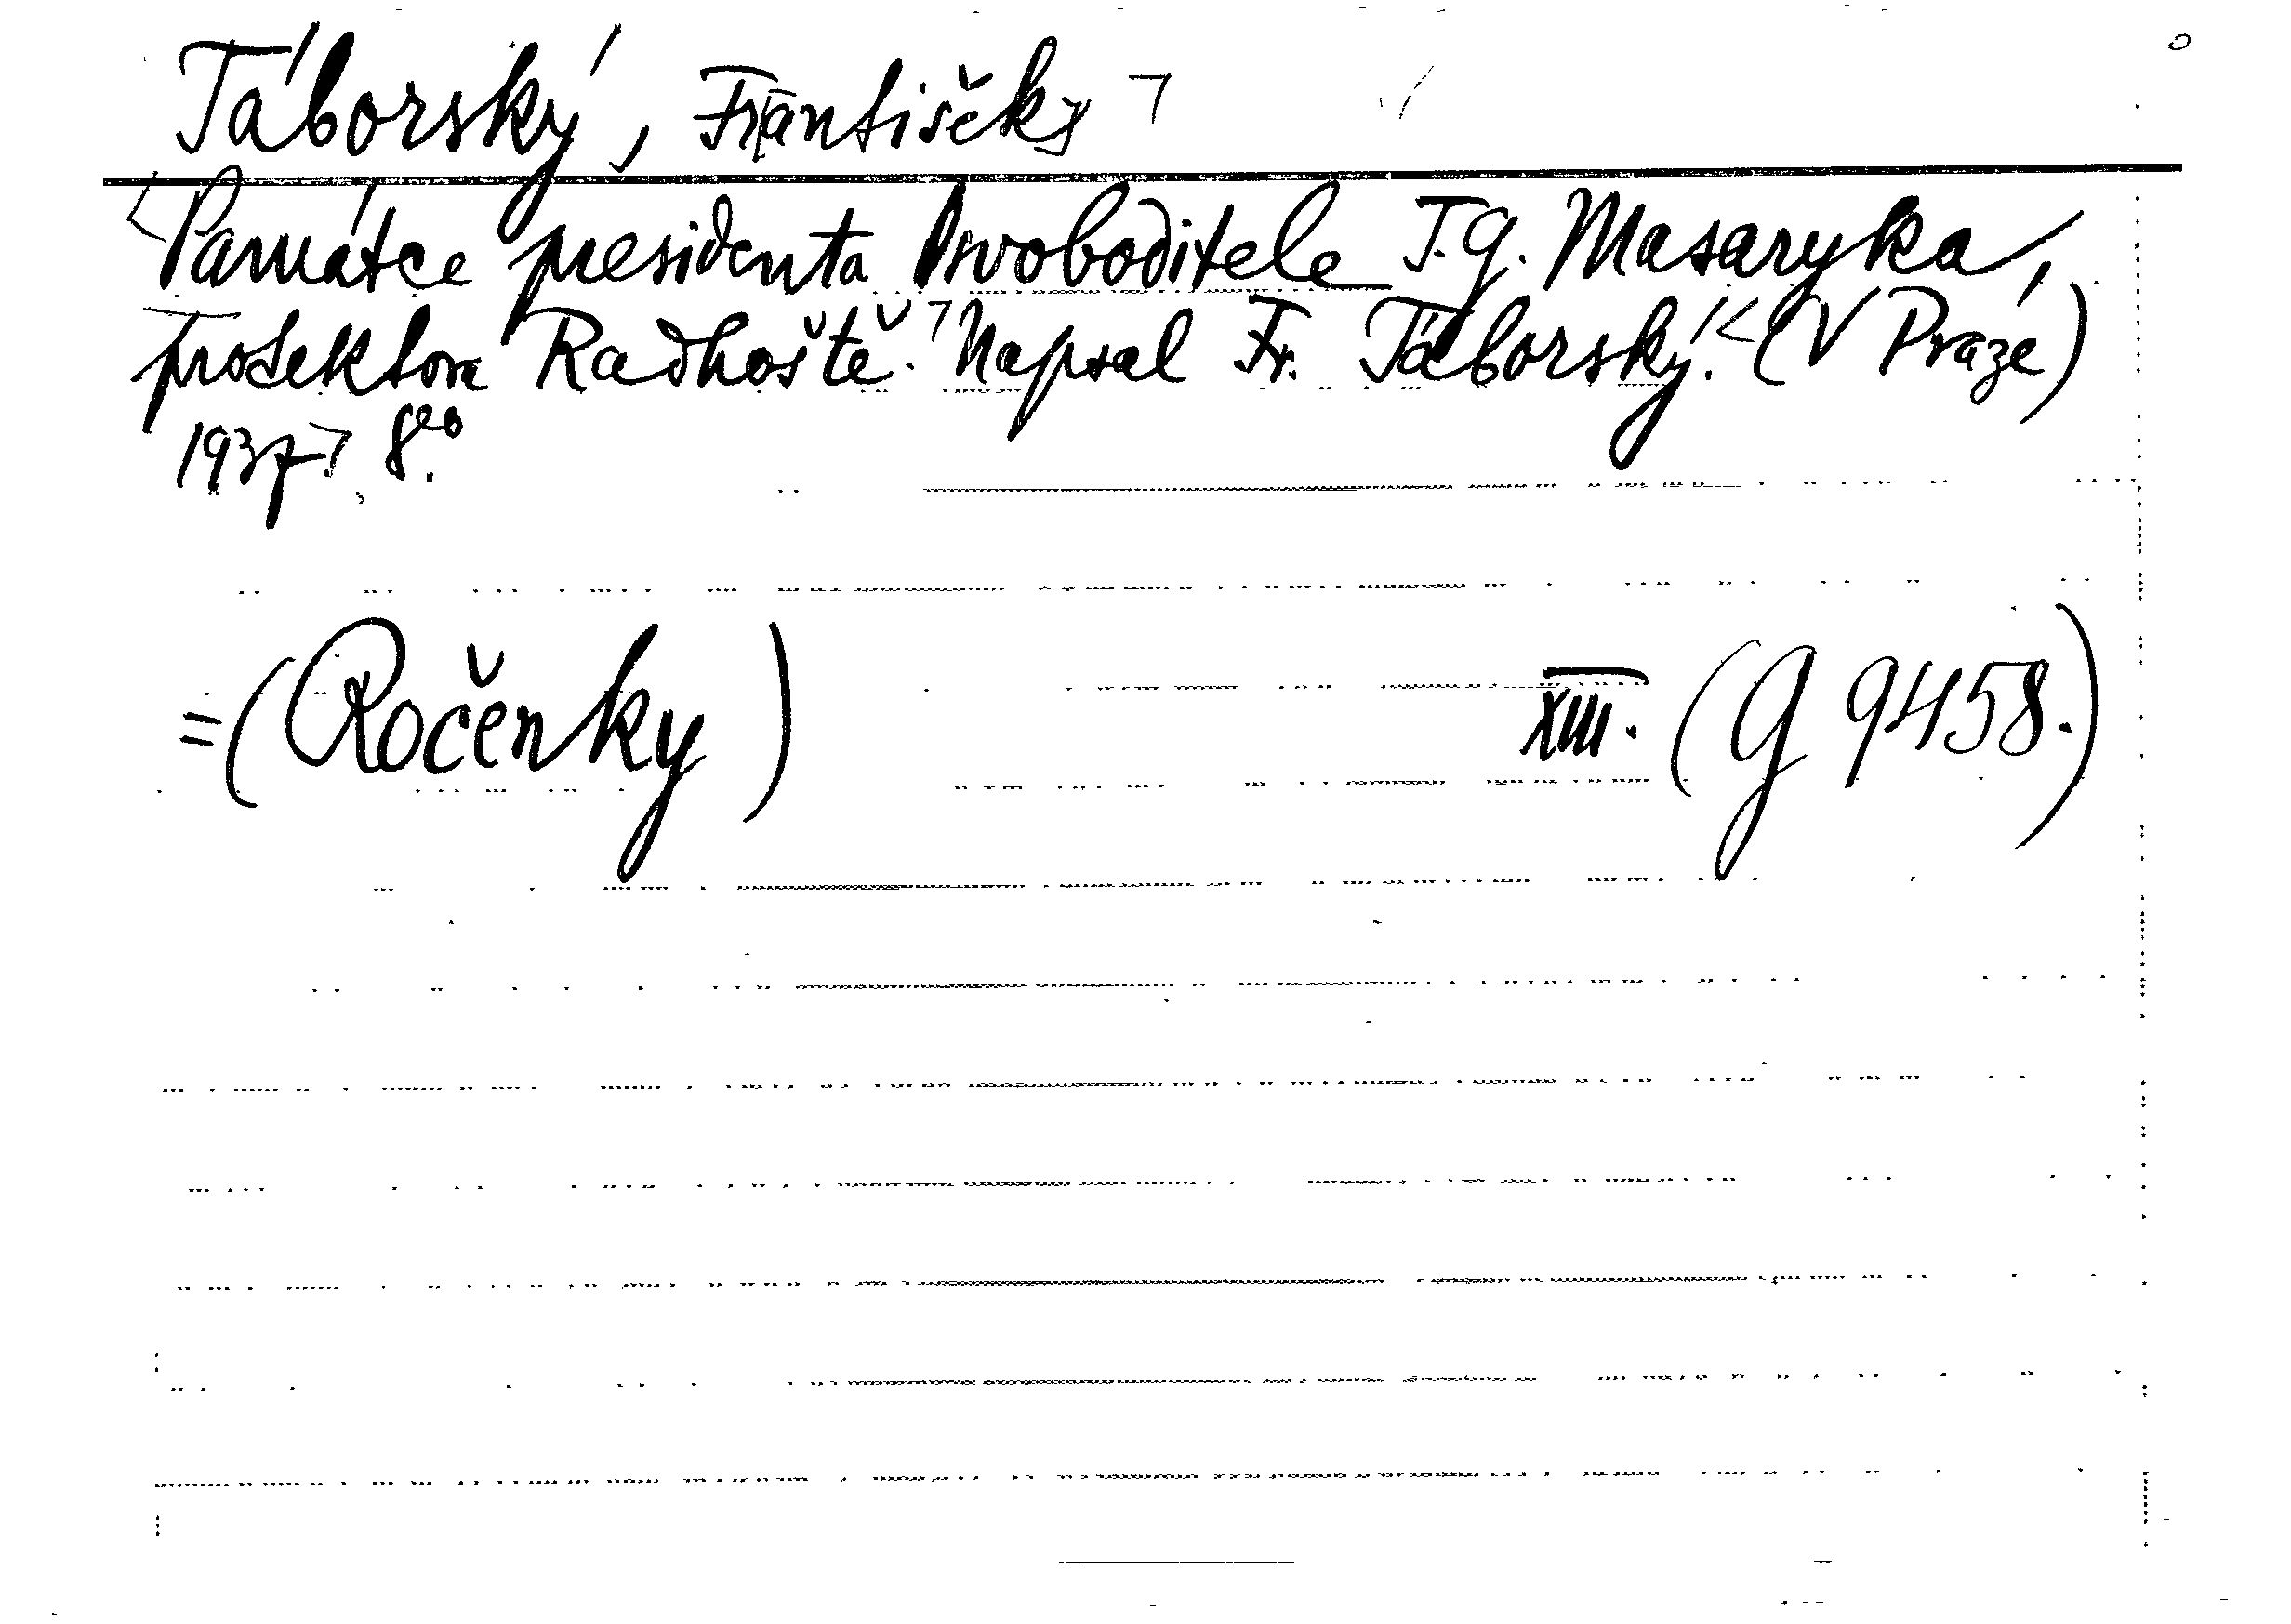 Táborský, František
Památce presidenta Osvoboditele T.G. Masaryka,
protektora Radhoště. Napsal Fr. Táborský. (V Praze)
1937. 8°.
=(Ročenky) XIII. (G 9458.)